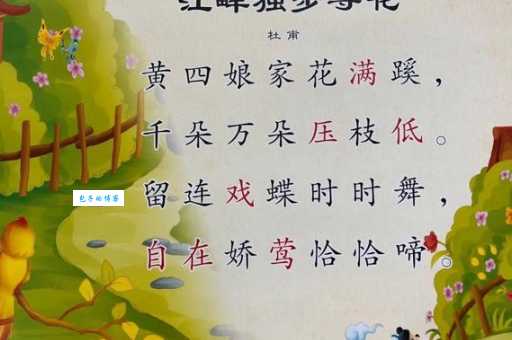 江畔独步寻花
杜甫
黄四娘家花满蹊，
千朵万朵压枝低。
留连戏蝶时时舞，
自在娇莺恰恰啼。